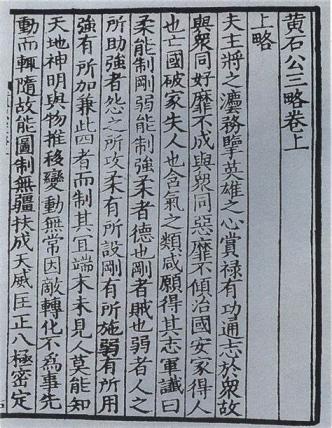 黄石公三略卷上
上略
夫主將之灋務擥英雄之心賞禄有功通志於衆故
與衆同好靡不成與衆同惡靡不傾治國安家得人
也亡國破家失人也含氣之類咸願得其志軍讖曰
柔能制剛弱能制強柔者德也剛者賊也弱者人之
所助強者怨之所攻柔有所設剛有所施弱有所用
強有所加兼此四者而制其宜端末未見人莫能知
天地神明與物推移變動無常因敵轉化不爲事先
動而輒隨故能圖制無疆扶成天威匡正八極密定